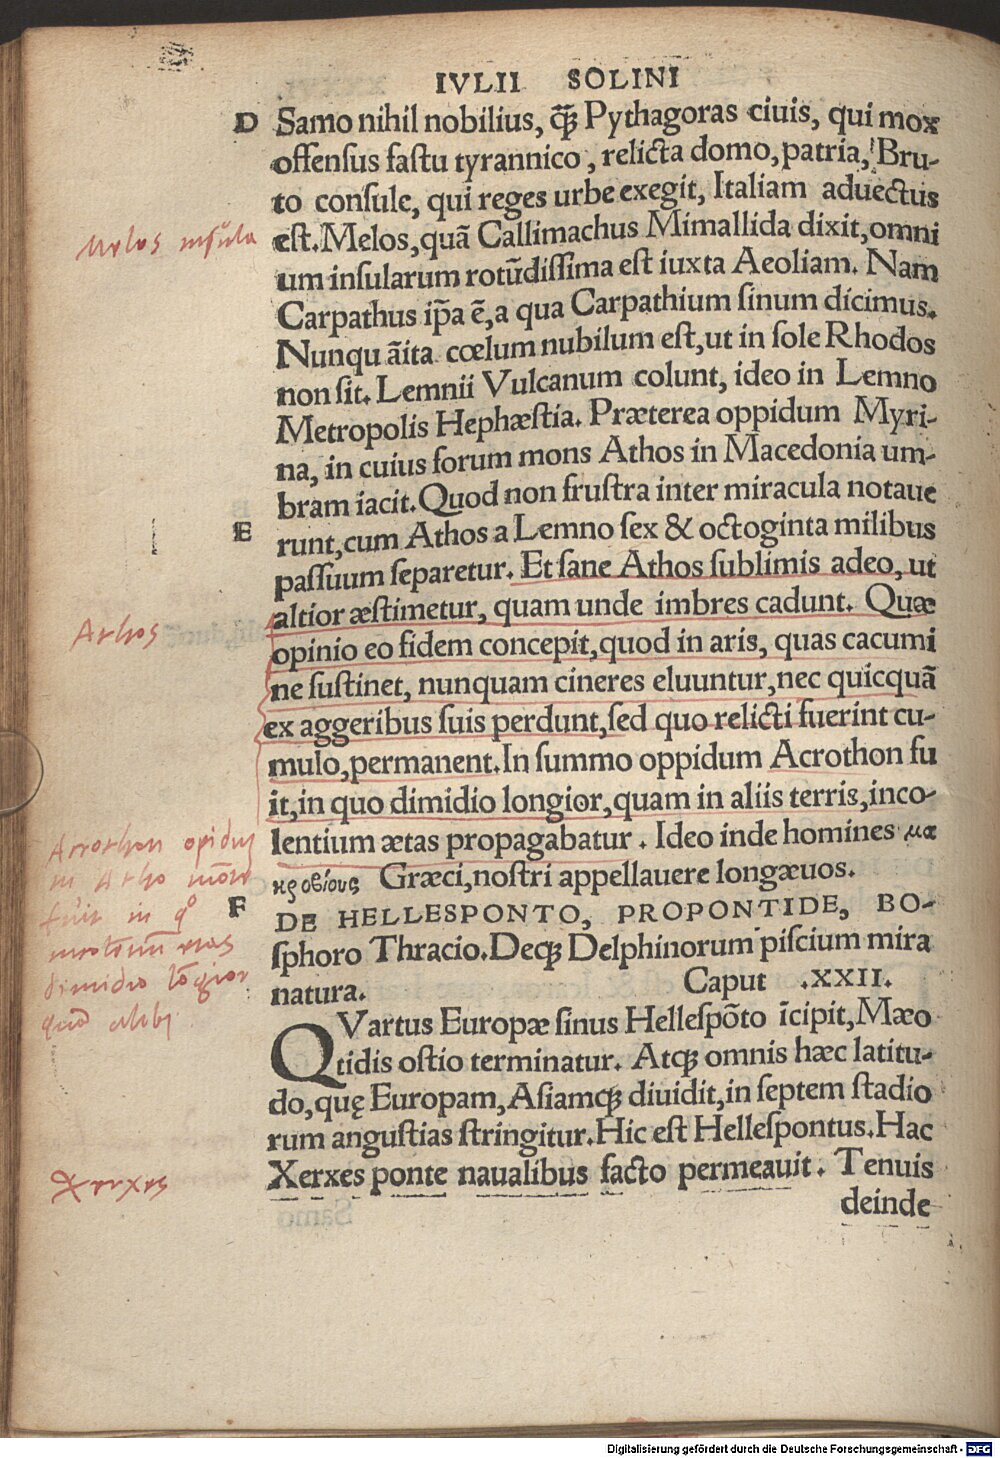 IVLII SOLINI
D Samo nihil nobilius, ꝙ̃ Pythagoras ciuis, qui mox
offenſus faſtu tyrannico, relicta domo, patria, Bru-
to conſule, qui reges urbe exegit, Italiam aduectus
Melos inſula
eſt. Melos, quã Callimachus Mimallida dixit, omni
um inſularum rotũdiſſima eſt iuxta Aeoliam. Nam
Carpathus ip̃a ẽ, a qua Carpathium ſinum dicimus.
Nunqu ãita cœlum nubilum eſt, ut in ſole Rhodos
non ſit. Lemnii Vulcanum colunt, ideo in Lemno
Metropolis Hephæſtia. Præterea oppidum Myri-
na, in cuius forum mons Athos in Macedonia um-
bram iacit. Quod non fruſtra inter miracula notaue
E runt, cum Athos a Lemno ſex & octoginta milibus
paſſuum ſeparetur. Et ſane Athos ſublimis adeo, ut
altior æſtimetur, quam unde imbres cadunt. Quæ
Athos
opinio eo fidem concepit, quod in aris, quas cacumi
ne ſuſtinet, nunquam cineres eluuntur, nec quicquã
ex aggeribus ſuis perdunt, ſed quo relicti fuerint cu-
mulo, permanent. In ſummo oppidum Acrothon fu
it, in quo dimidio longior, quam in aliis terris, inco-
lentium ætas propagabatur. Ideo inde homines μα
κροβίους Græci, noſtri appellauere longæuos.
Acrothon opidum
in Atho mõte
fuit in qͦ
etas
dimidio lõgior
quã alibi
F DE HELLESPONTO, PROPONTIDE, BO-
ſphoro Thracio. Deqꝫ Delphinorum piſcium mira
natura. Caput .XXII.
QVartus Europæ ſinus Helleſpõto ĩcipit, Mæo
tidis oſtio terminatur. Atqꝫ omnis hæc latitu-
do, quę Europam, Aſiamqꝫ diuidit, in ſeptem ſtadio
rum anguſtias ſtringitur. Hic eſt Helleſpontus. Hac
Xerxes
Xerxes ponte naualibus facto permeauit. Tenuis
deinde
Digitalisierung gefördert durch die Deutsche Forschungsgemeinschaft - DFG